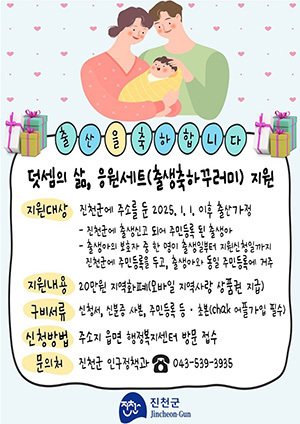 출산을축하합니다
덧셈의 삶, 응원세트(출생축하꾸러미) 지원
지원대상 진천군에 주소를 둔 2025. 1. 1. 이후 출산가정
- 진천군에 출생신고 되어 주민등록 된 출생아
- 출생아의 보호자 중 한 명이 출생일부터 지원신청일까지
진천군에 주민등록을 두고, 출생아와 동일 주민등록에 거주
지원내용 20만원 지역화폐(모바일 지역사랑 상품권 지급)
구비서류 신청서, 신분증 사본, 주민등록 등·초본(chak 어플가입 필수)
신청방법 주소지 읍면 행정복지센터 방문 접수
문의처 진천군 인구정책과 ☎ 043-539-3935
진천군
Jincheon-Gun